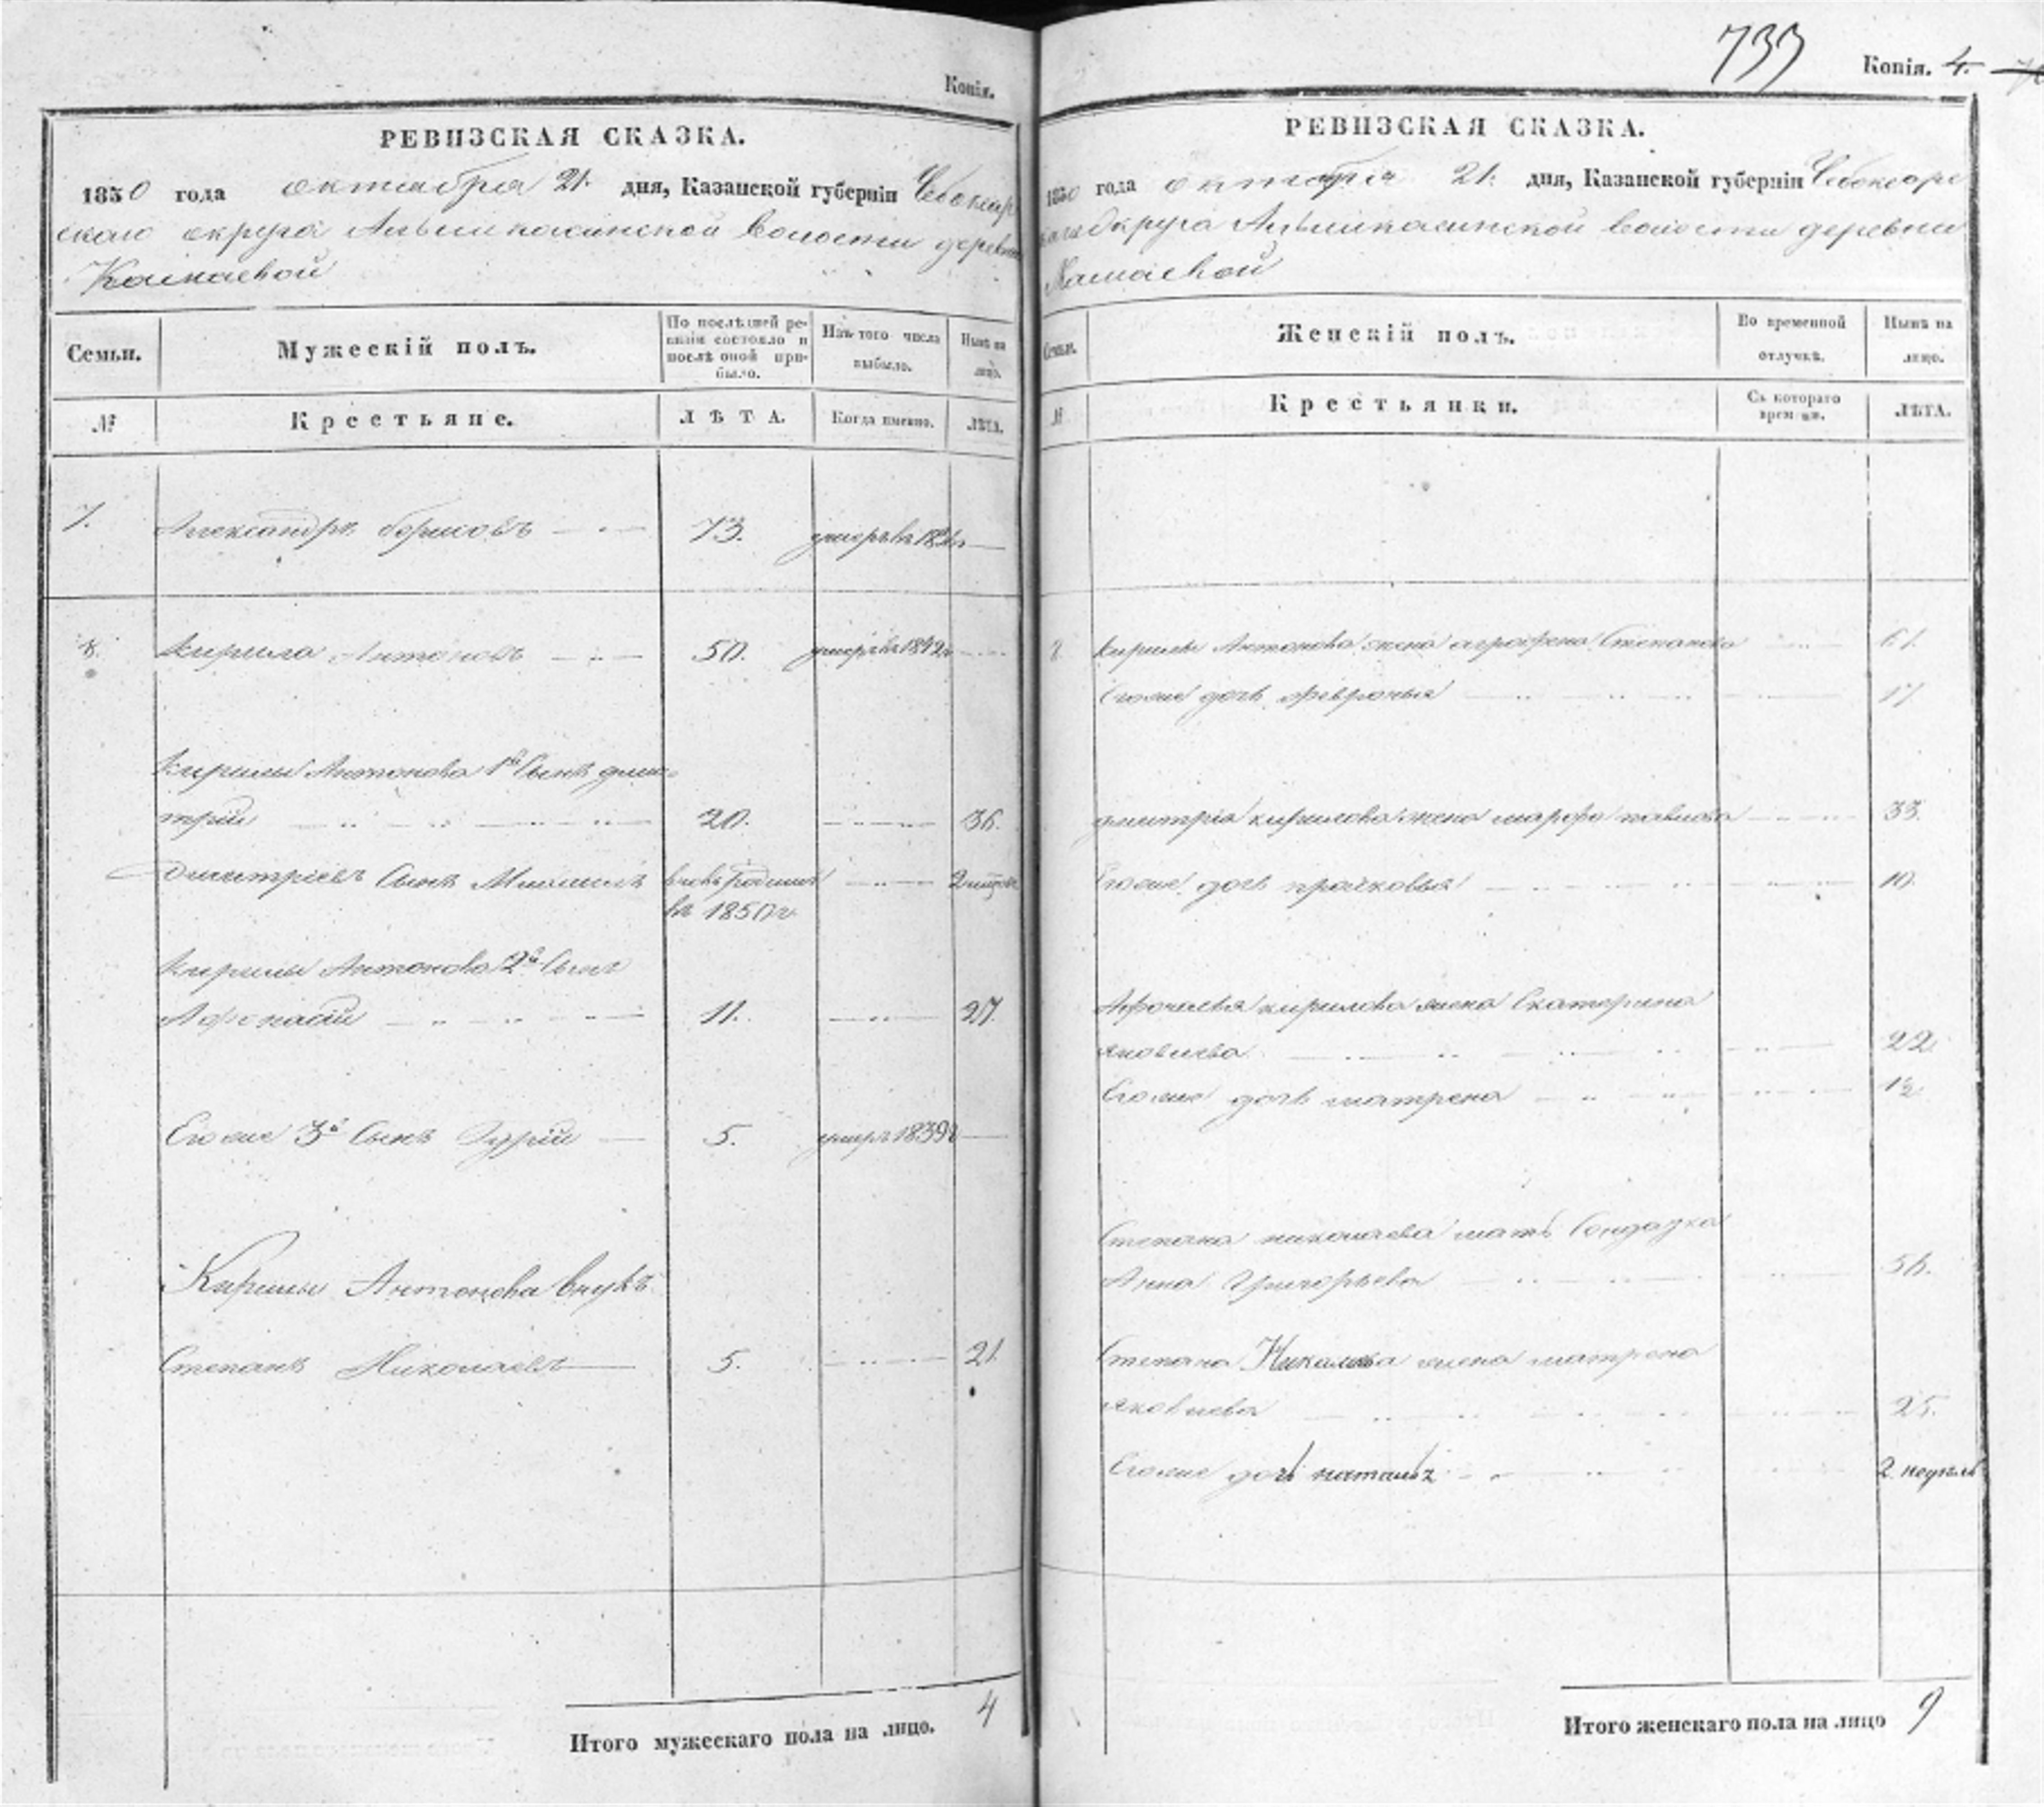 Копія.
РЕВИЗСКАЯ СКАЗКА.
1850 года октября 21. дня, Казанской губерніи Чебоксар
скаго округа волости деревни
Семьи.
Мужескій полъ.
По послѣдней ре-
визіи состояло и
послѣ оной при-
было.
Изъ того числа
выбыло.
Нынѣ на
лицо.
№
Крестьяне.
ЛѢТА.
Когда именно.
ЛѢТА.
7. Александръ Борисовъ 73. умеръ въ
8. Кирила Антоновъ 50. умеръ въ 1842г
Кирилы Антонова 1й Сынъ Дми-
трій 20. 36.
Дмитріевъ Сынъ Михаилъ вновь рожден
въ 1850г
Кирилы Антонова 2й Сынъ
Афонасій 11. 27.
Его же 3й Сынъ Гурій 5. умеръ 1839г
Кирилы Антонова внукъ
Степанъ Николаевъ 5. 21.
Итого мужескаго пола на лицо. 4
733
Копія. 4.
РЕВИЗСКАЯ СКАЗКА.
1850 года октября 21. дня, Казанской губерніи Чебоксарс
каго округа волости деревни
Семьи.
Женскій полъ.
Во временной
отлучкѣ.
Нынѣ на
лицо.
№
Крестьянки.
Съ котораго
времени.
ЛѢТА.
8. Кирилы Антонова жена аграфена Степанова 61.
Его же дочь февронья 17
дмитрія кирилова жена марфа павлова 33.
Его же дочь прасковья 10.
Афонасья кирилова жена Екатерина
яковлева 22
Его же дочь матрена 1½
Степана николаева мать Солдатка
Анна Григорьева 56.
Степана Николаева жена матрена
яковлева 25.
Его же дочь наталья 2. недѣль
Итого женскаго пола на лицо 9